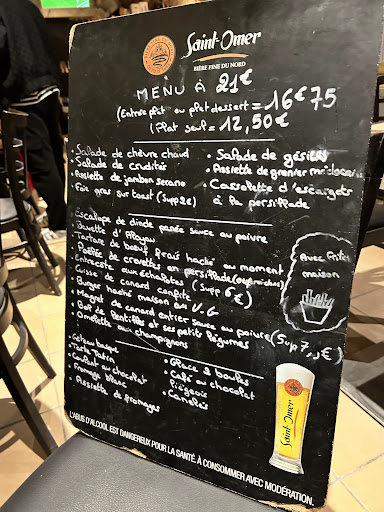 Saint-Omer
BIÈRE FINE DU NORD
MENU À 21€
(Entrée plat ou plat dessert = 16€75
(Plat seul = 12,50€
• Salade de chèvre chaud
• Salade de crudités
• Assiette de jambon serano
• Foie gras sur toast (Supp 2€)
• Salade de gésiers
• Assiette de grenier médocain
• Cassolette d'escargots
à la persillade
Escalope de dinde panée sauce au poivre
Bavette d'Aloyau
Tartare de boeuf frais haché au moment
Poêlée de crevettes en persillade (ou
Entrecôte aux échalotes (Supp 6€)
Cuisse de canard confite
Burger haché maison ou V.G
Magret de canard entier sauce au poivre (Sup 7,
€)
Bol de lentilles et ses petits légumes
Omelette aux champignons
Avec frites
maison
• Gateau basque
• Tarte Tatin
• Coulant au chocolat
• Fromage blanc
• Assiette de fromages
• Glace 2 boules
• Café ou chocolat
liégeois
• Canelés
Saint-Omer
L'ABUS D'ALCOOL EST DANGEREUX POUR LA SANTÉ. À CONSOMMER AVEC MODÉRATION.